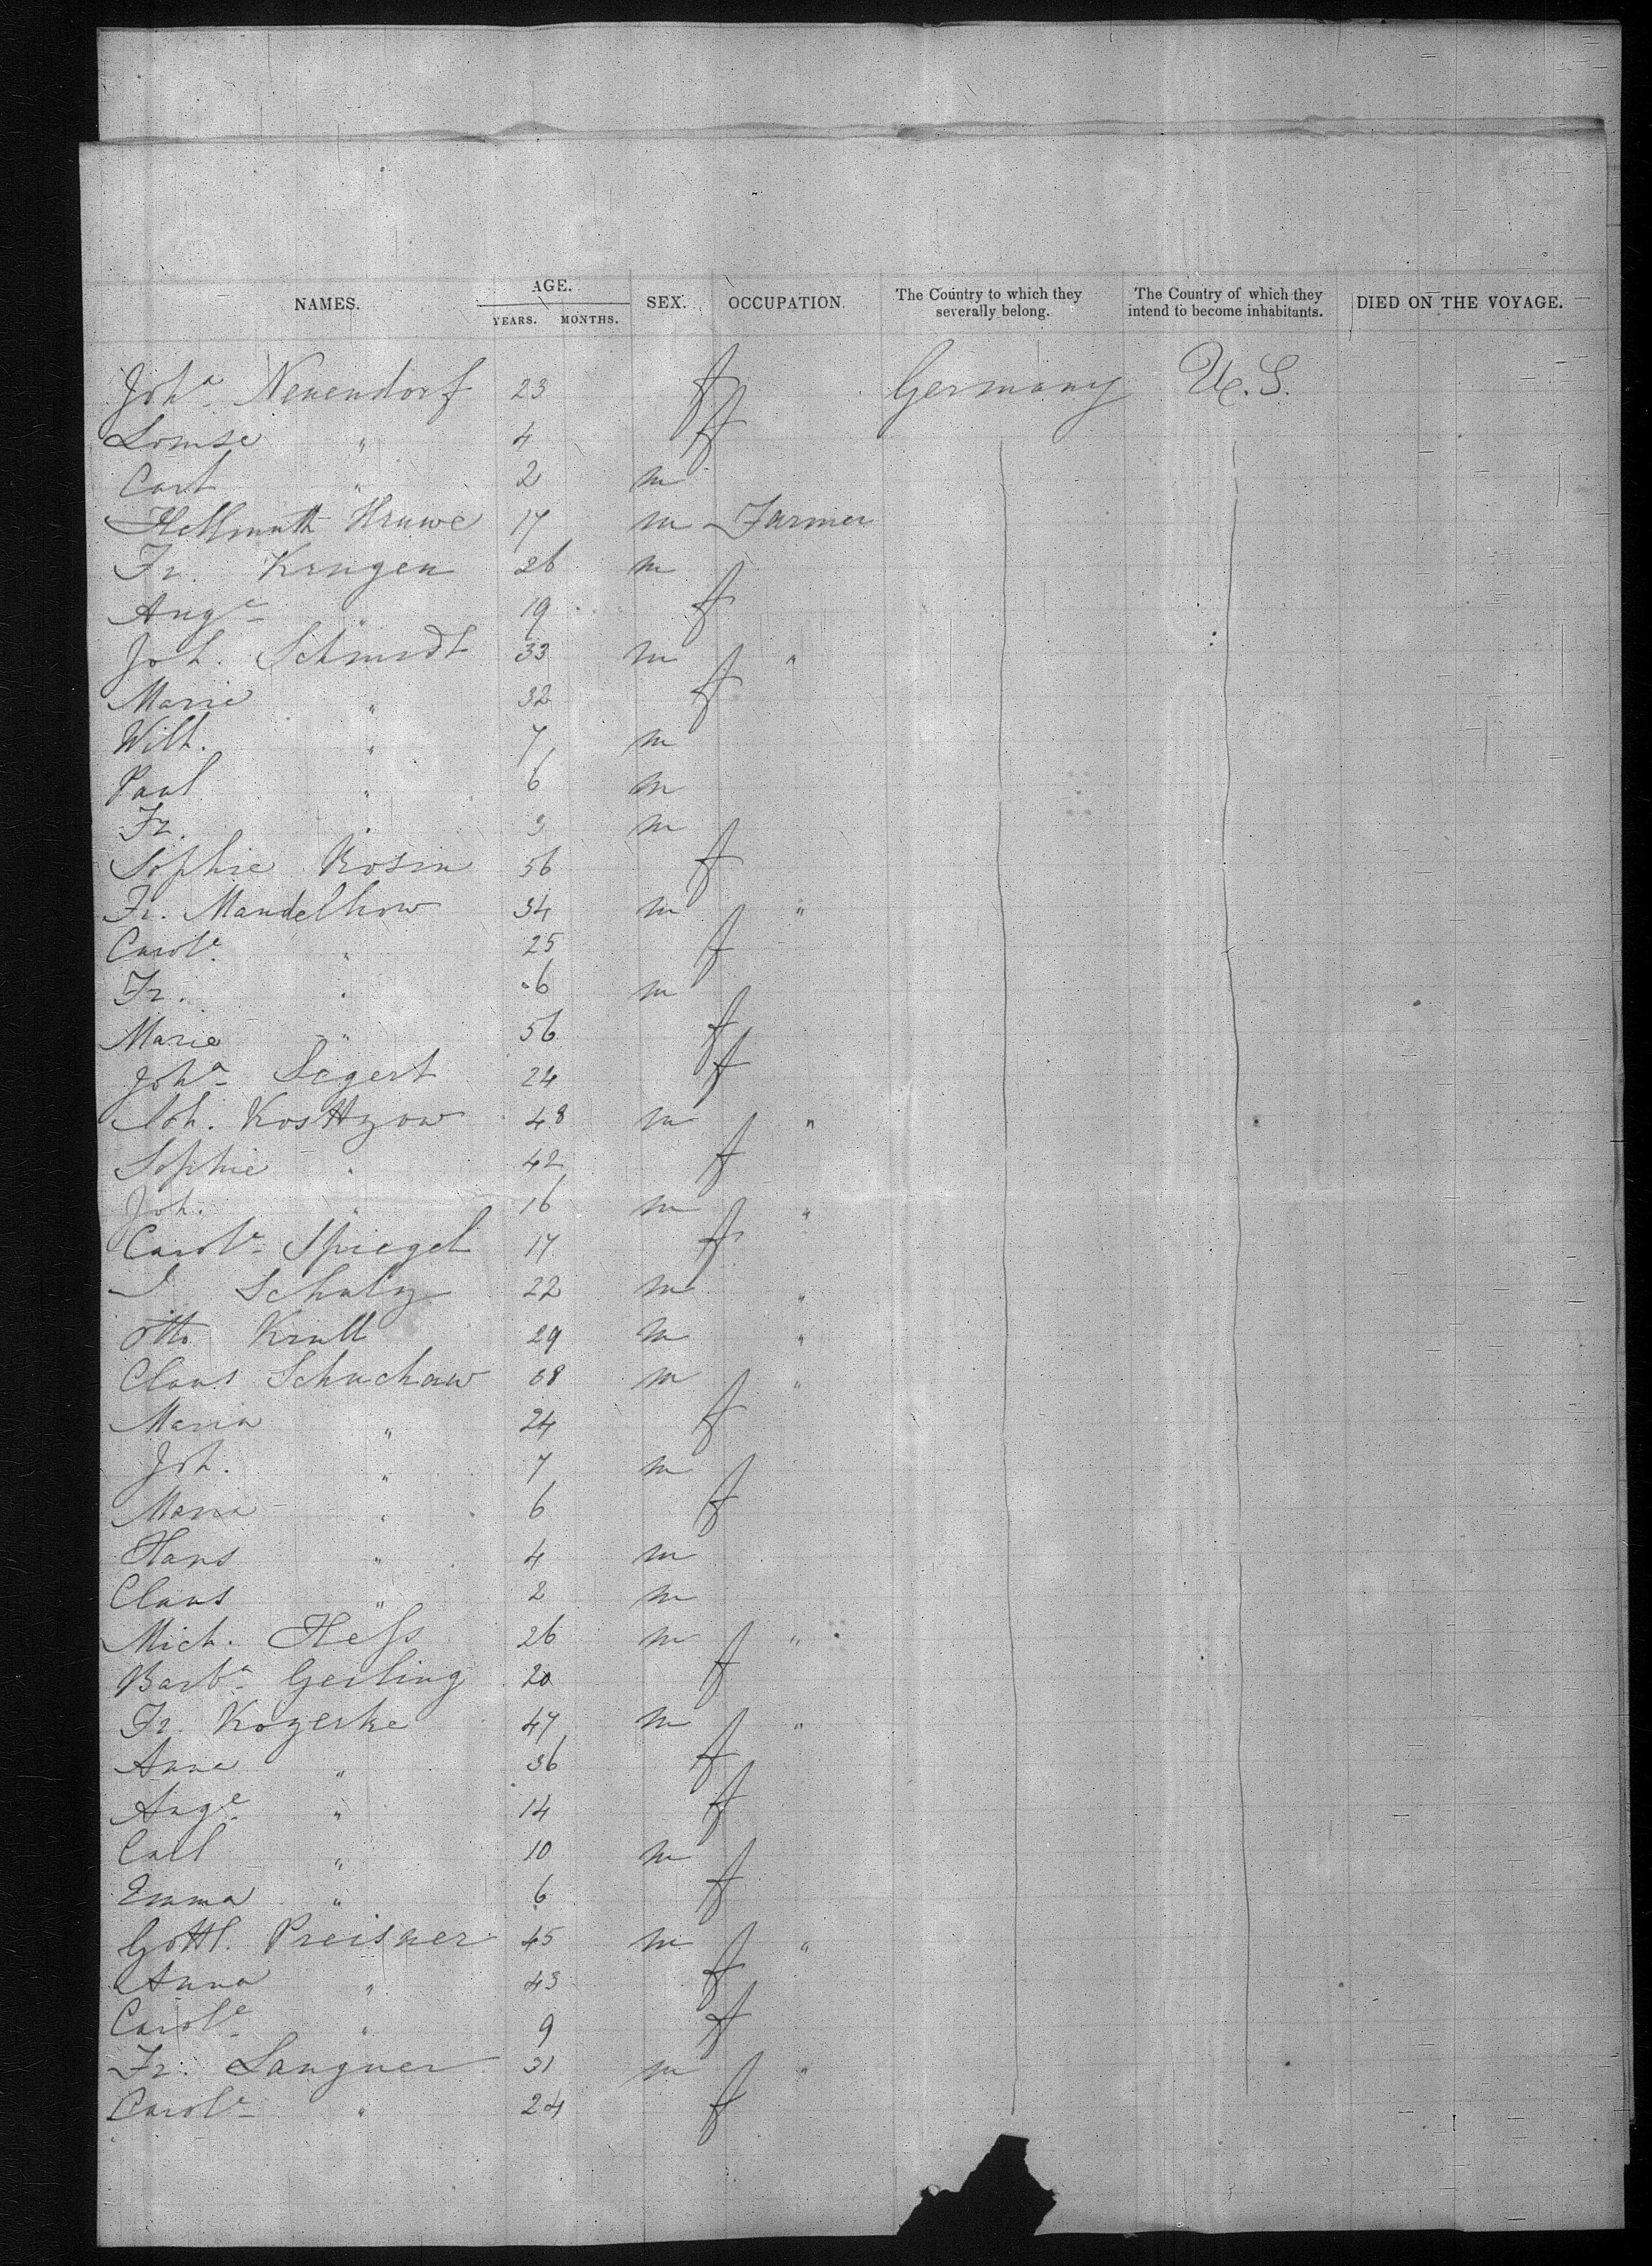 NAMES. AGE. YEARS. MONTHS. SEX. OCCUPATION. The Country to which they severally belong. The Country of which they intend to become inhabitants. DIED ON THE VOYAGE.
Joha Neuendorf 23 f Germany U.S.
Louise " 4 f
Carl " 2 m
Hellmuth Hruwe 17 m Farmer
Fr. Krugen 26 m
Auge " 19 f
Joh. Schmidt 33 m "
Marie " 32 f
Wilh. " 7 m
Paul " 6 m
Fr. " 3 m
Sophie Rosin 56 f
Fr. Mandelkow 34 m "
Carole " 25 f
Fr. " 6 m
Marie " 56 f
Joha Segert 24 f
Joh. Kosttzow 48 m "
Sophie " 42 f
Joh. " 16 m "
Carole Spiegel 17 f
Schulz 22 m "
Otto Krull 29 m "
Claus Schuchaw 38 m "
Maria " 24 f
Joh. " 7 m
Maria " 6 f
Hans " 4 m
Claus " 2 m
Mich. Hess 26 m "
Barba Gerling 20 f
Fr. Kozerke 47 m "
Anna " 36 f
Auge " 14 f
Carl " 10 m
Emma " 6 f
Gottl. Preisner 45 m "
Anna " 43 f
Carole " 9 f
Fr. Langner 31 m "
Carole " 24 f